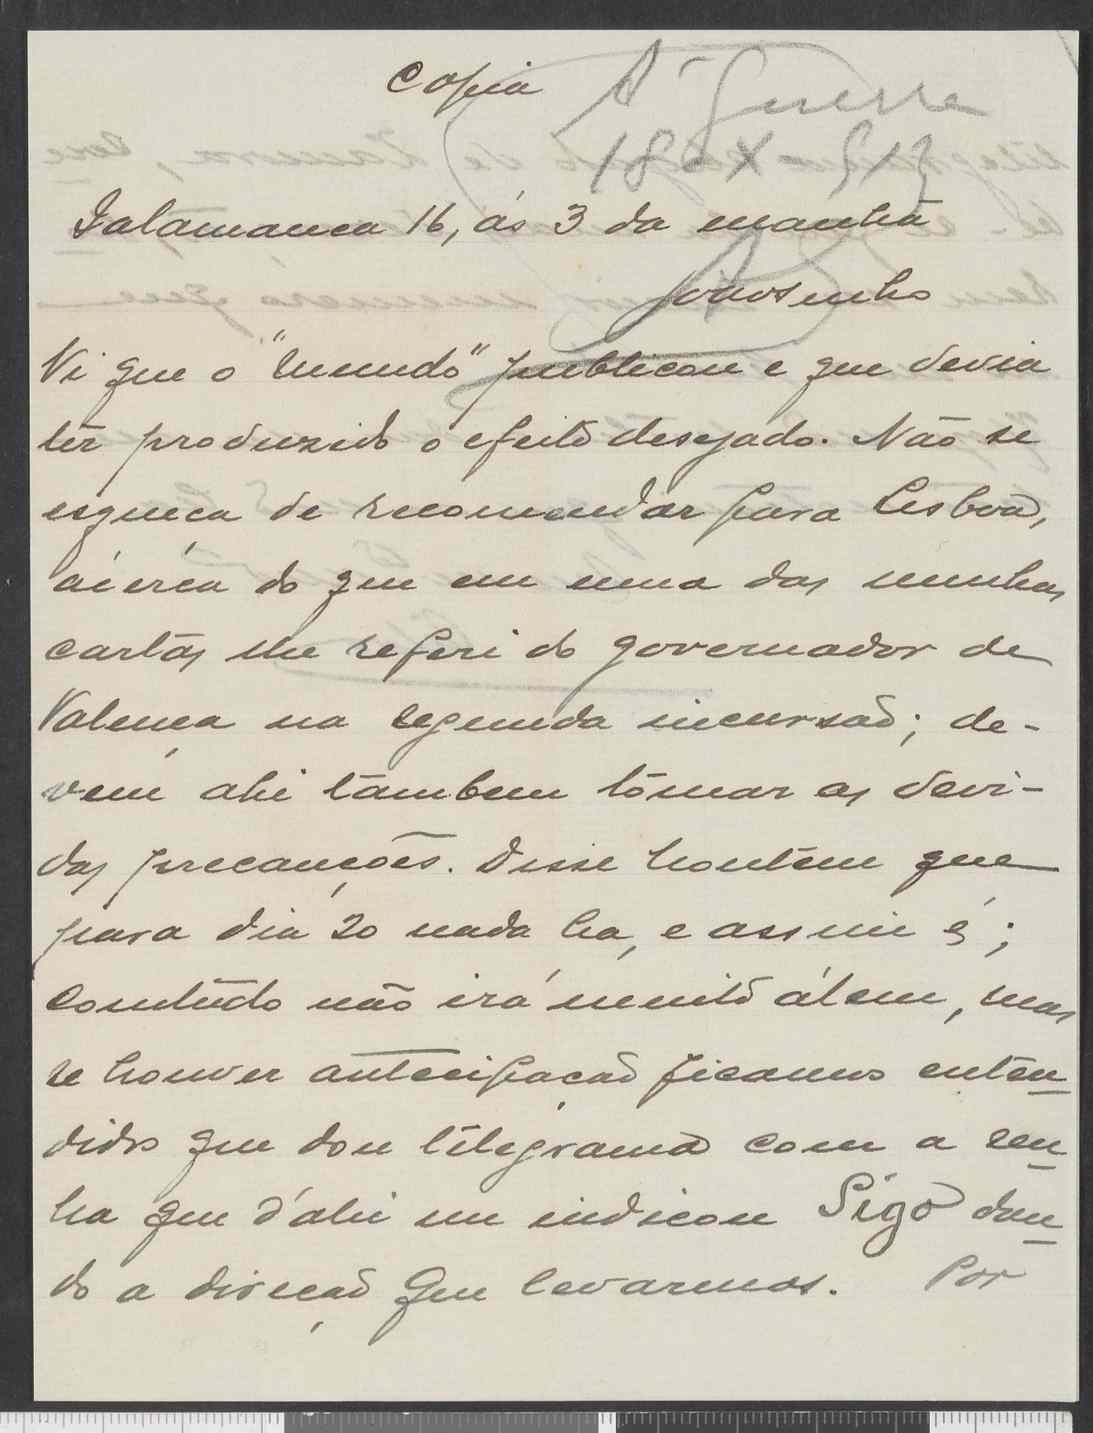 Copia
A' Guerra
18-X-913
Salamanca 16, ás 3 da manhã
Vi que o "Mundo" publicou e que devia
ter produzido o efeito desejado. Não se
esqueça de recomendar para Lisboa,
ácêrca do que em uma das minhas
cartas me referi do governador de
Valença na segunda incursão; de-
vem ahi tambem tomar as devi-
das precauções. Disse hontem que
para dia 20 nada ha, e assim é;
comtudo não irá muito álem, mas
se houver antecipação ficamos enten-
didos que dou telegrama com a sen-
ha que d'ahi me indicou Sigo dan-
do a direcção que levarmos. Por